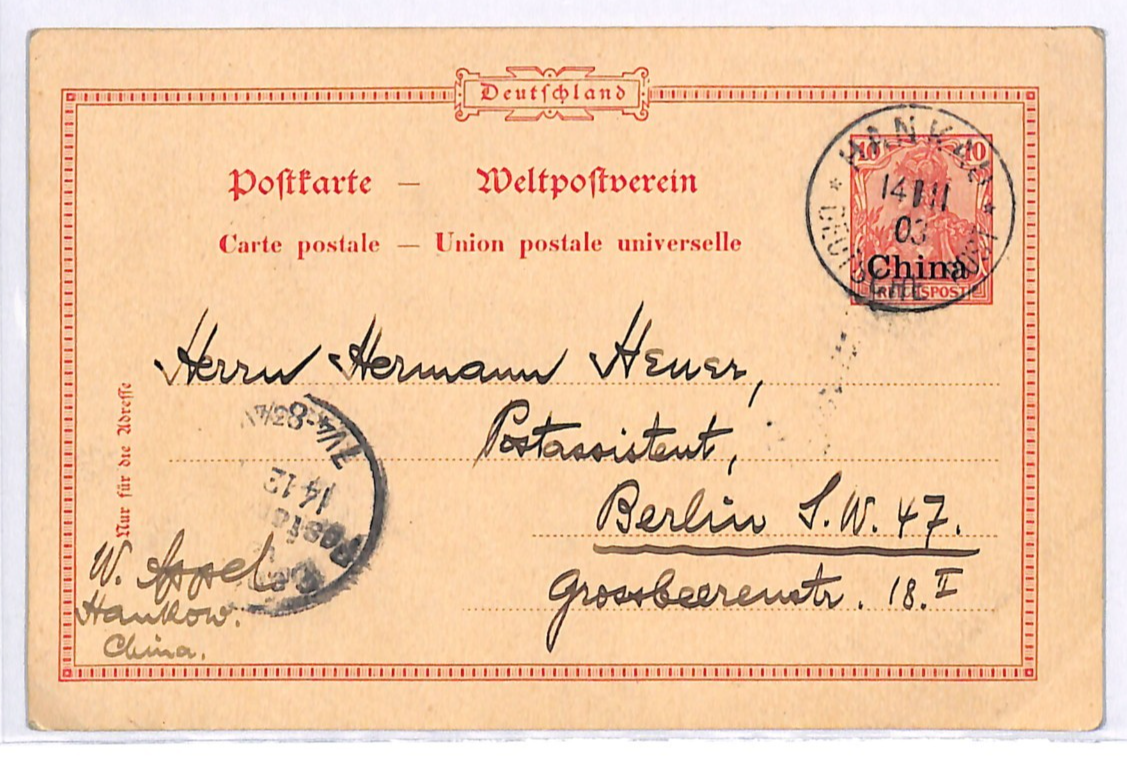 Deutschland
Postkarte — Weltpostverein
Carte postale — Union postale universelle
10 10
China
REICHSPOST
HANKAU
14 11
03
DEUTSCHE POST
Herrn Hermann Heuer,
Postassistent,
Berlin S.W. 47.
Grossbeerenstr. 18. II
Nur für die Adresse
14.12
W. Appel
Hankow.
China.